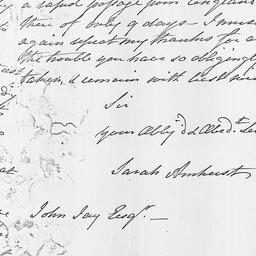 a rapid passage from England
there of only 9 days - I must
again repeat my thanks for a
the trouble you have so obligingly
taken, & remain with best
Sir
your Oblig'd & Obed.t Se
Sarah Amherst
John Jay Esqr. —